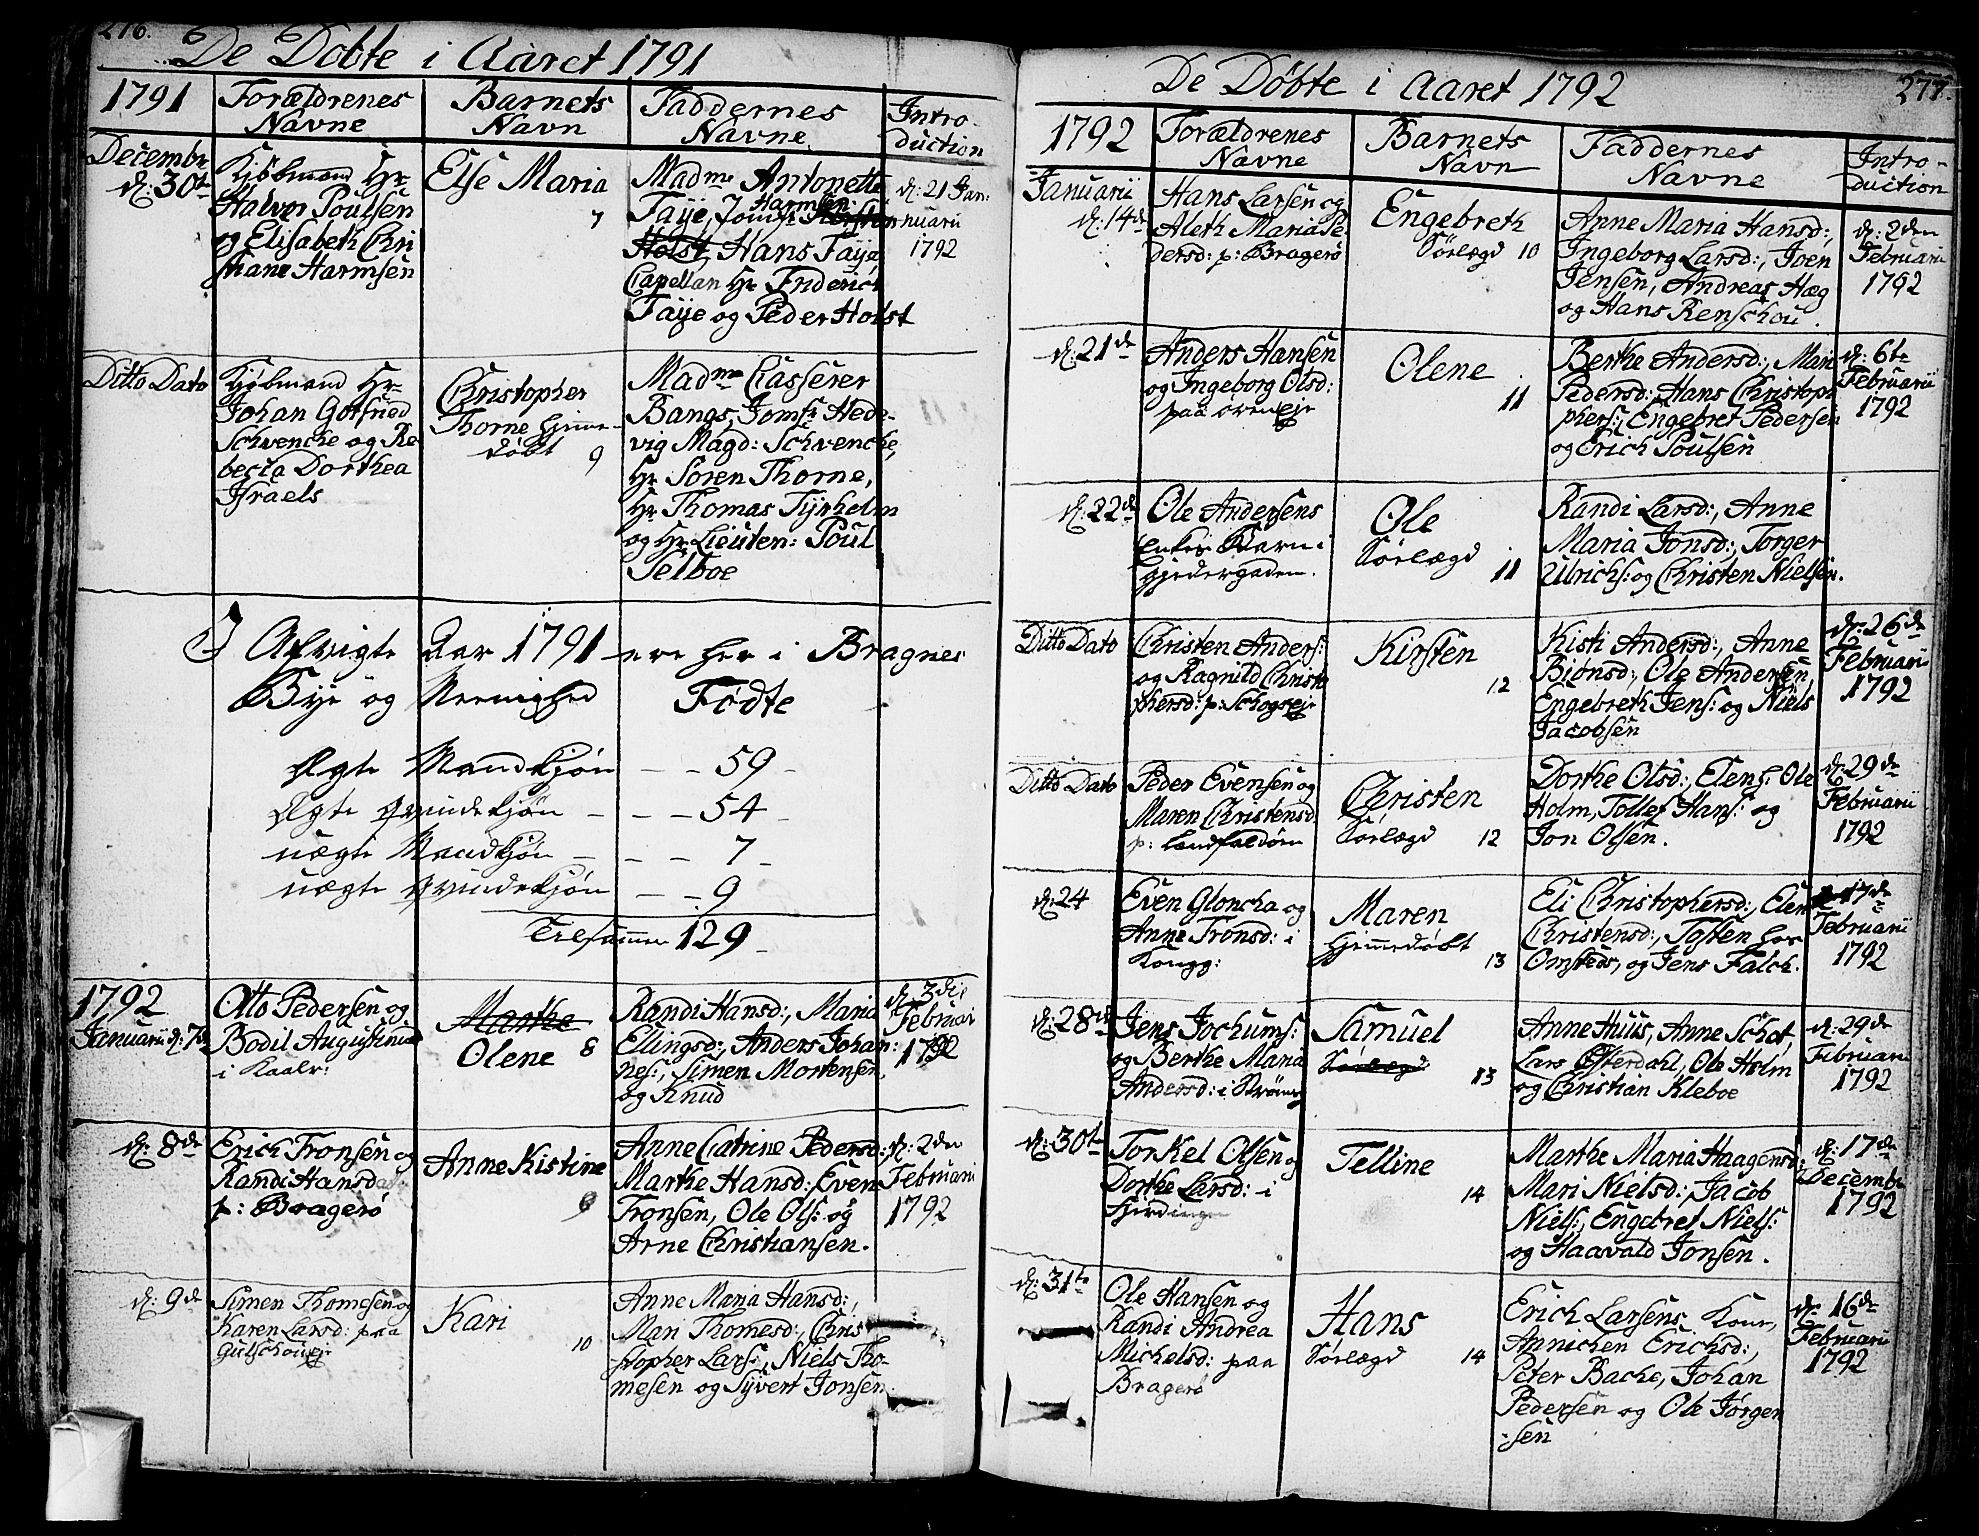 276.
De Døbte i Aaret 1791
1791
Forældrenes
Navne
Barnets
Navn
Faddernes
Navne
Intro-
duction
Decembr
d: 30te
Kjøbmand Hr
Halvor Poulsen
og Elisabeth Chri
stiane Harmsen
Else Maria
7
Madme Antonette
Faye, Jomfr Harmsen
Holst, Hans Faye
Capellan Hr Friderich
Faye og Peder Holst
d: 21 Jan:
nuarii
1792
Ditto Dato
Kjøbmand Hr
Johan Gotfried
Schvencke og Re
becca Dorthea
Israels
Christopher
Thorne hjemme-
døbt 9
Madme Casserer
Bangs, Jomfr Hede-
vig Magd: Schvencke,
Hr Søren Thorne,
Hr Thomas Tyrholm
og Hr Lieuten: Poul
Selboe
I Afvigte Aar 1791 ere her i Bragnes
Bye og Meenighed Fødte
Ægte Mandkjøn - - 59 -
Ægte Qvindekjøn - - - 54 -
uægte Mandkjøn - - - 7 -
uægte Qvindekjøn - - 9
Tilsammen 129 -
1792
Januarii d: 7de
Otto Pedersen og
Bodil Augustinusd
i Kaalr:
Marthe
Olene 8
Randi Hansd:, Maria
Ellingsd:, Anders Johan:
nes:, Simen Mortensen
og Knud
d: 3die
Februari
1792
d: 8de
Erich Tronsen og
Randi Hansd
p: Bragerø
Anne Kistine
9
Anne Catrine Pedersd:
Marthe Hansd:, Even
Tronsen, Ole Ols: og
Arne Christiansen.
d: 2den
Februarii
1792
d: 9de
Simen Thomesen og
Karen Larsd: paa
Gulschouejе
Kari
10
Anne Maria Hansd:,
Mari Thomesd:, Chris
stopher Lars:, Niels Tho-
mesen og Syvert Jonsen.
277.
De Døbte i Aaret 1792
1792
Forældrenes
Navne
Barnets
Navn
Faddernes
Navne
Intro-
duction
Januarii
d: 14de
Hans Larsen og
Aleth Maria Pe
dersd: p: Bragerø
Engebreth
Sørlægd 10
Anne Maria Hansd:,
Ingeborg Larsd:, Joen
Jensen, Andreas Hæg
og Hans Renschou.
d: 2den
Februarii
1792
d: 21de
Anders Hansen
og Ingeborg Olsd:
paa øreneje
Olene
11
Berthe Andersd:, Mari
Pedersd: Hans Christop
phers:, Engebret Pedersen
og Erich Poulsen
d: 6te
Februarii
1792
d: 22de
Ole Andersens
Enkes Barn i
gjedergaden.
Ole
Sørlægd
11
Randi Larsd:, Anne
Maria Jonsd:, Torger
Ulrichs: og Christen Nielsen.
Ditto Dato
Christen Anders:
og Ragnild Christo
phersd: p: Schogseje
Kirsten
12
Kisti Andersd:, Anne
Biønsd:, Ole Andersen,
Engebreth Jens: og Niels
Jacobsen
d: 26de
Februarii
1792
Ditto Dato
Peder Evensen og
Maren Christensd
p: Landfaldøen
Christen
Sørlægd 12
Dorthe Olsd:, Elens: Ole
Holm, Tollef Hans: og
Jon Olsen.
d: 29de
Februarii
1792
d: 24
Even Gloncha og
Anne Tronsd: i
Kongg:
Maren
Hjemmedøbt
13
Eli Christophersd:, Elen
Christensd:, Tosten hos
Omsteds, og Jens Falch.
17de
Februarii
1792
d: 28de
Jens Jochums:
og Berthe Maria
Andersd: i Strømsg
Samuel
Sørlægd
13
Anne Huus, Anne Schøt,
Lars Østerdahl, Ole Holm
og Christian Kleboe
d: 29de
Februari
1792
d: 30te
Torkel Olsen og
Dorthe Larsd: i
Hjerdingen
Telline
14
Marthe Maria Haagensd:
Mari Nielsd: Jacob
Niels:, Engebret Niels:
og Haavald Jonsen.
d: 17de
Decembr
1792
d: 31te
Ole Hansen og
Randi Andrea
Michelsd: paa
Bragerø
Hans
Sørlægd 14
Erich Larsens Kone,
Annichen Erichsd:,
Peter Bache, Johan
Pedersen og Ole Jørgen
-sen
d: 16de
Februarii
1792